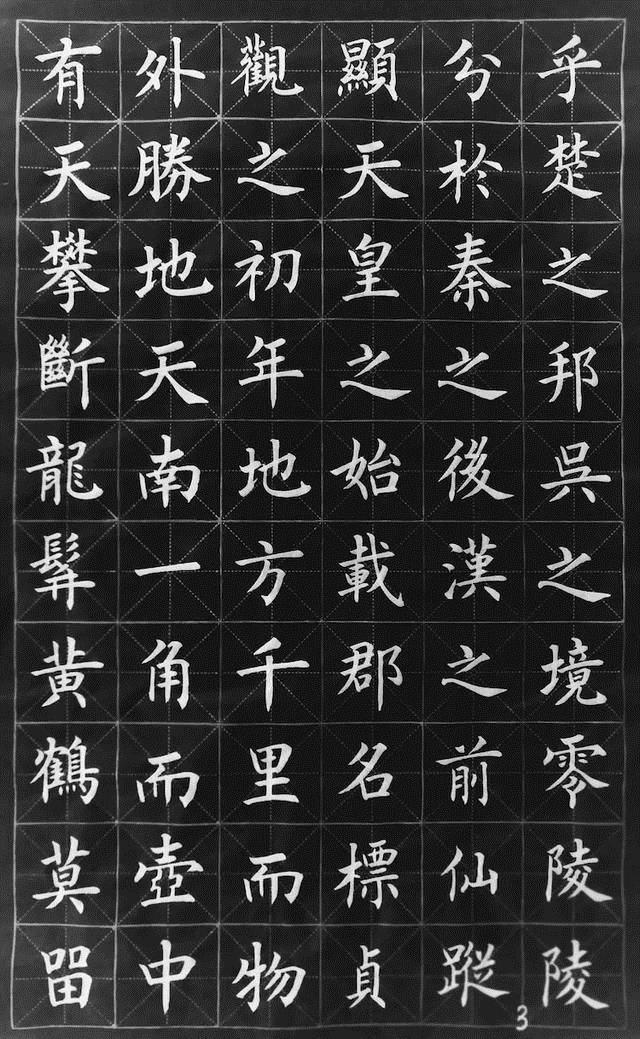 乎楚之邦吳之境零陵陵
分於秦之後漢之前仙蹤
顯天皇之始載郡名標貞
觀之初年地方千里而物
外勝地天南一角而壺中
有天攀斷龍髯黄鶴莫㽞
3